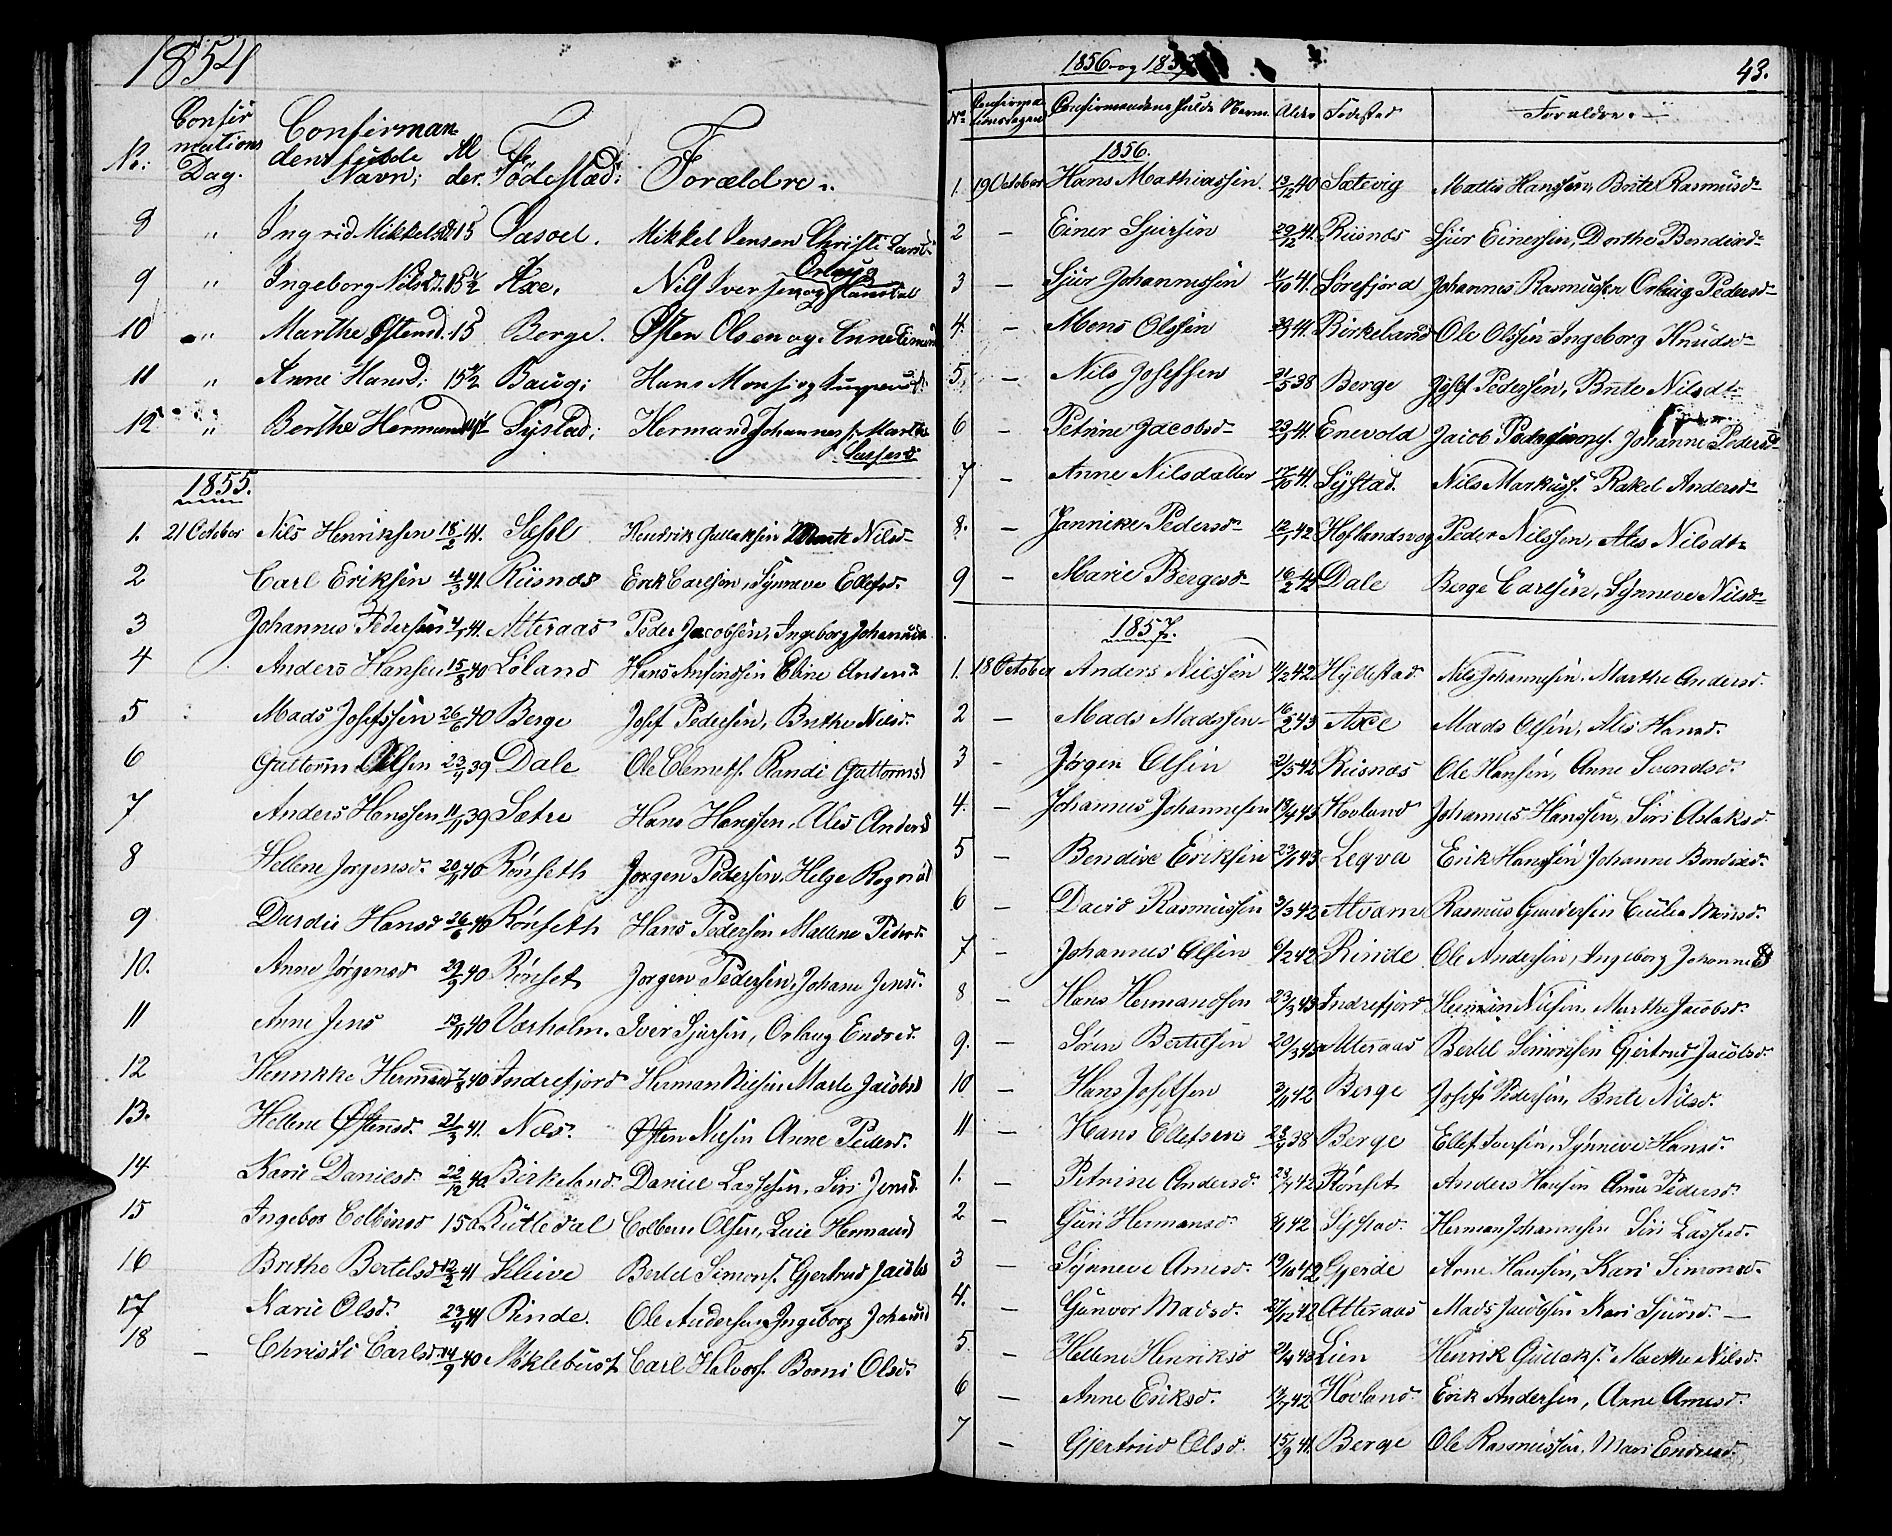 1854
No: Confirmations Dag. Confirmandens fulde Navn; Alder. Födestad: Forældre..
8 " Ingrid Mikkelsd. 15 Mikkel Jensen Christi
9 " Ingeborg Nilsd. 15 1/2 Axe. Nils Iversen og Orlaug
10 " Marthe Østensd. 15 Berge. Østen Olsen og Anne
11 " Anne Hansd: 15 1/2 Baug; Hans Monss. og
12 " Berthe Hermansd. Systad; Herman Johanness. Marthe Lassesd
1855.
1. 21 October Nils Henriksen 18/2 41. Hendrik Gullaksen Marte Nilsd
2 Carl Eriksen 4/3 41. Riisnæs Erik Carlsen, Synneve Ellefsd.
3 Johannes Pedersen 4/1 41. Atteraas Peder Jacobsen, Ingeborg Johannsd
4 Anders Hansen 15/8 40 Løland Hans Ansindsen Eline Andersd
5 Mads Josefssen 26/6 40 Berge Josef Pedersen, Brithe Nilsd.
6 Guttorm Olsen 23/11 39 Dale Ole Clemets. Randi Guttormsd
7 Anders Hanssen 11/11 39 Sætre Hans Hanssen, Ales Andersd
8 Hellene Jørgensd. 20/11 40 Rönseth Jørgen Pedersen, Helge Rognsd
9 Durdei Hansd 26/6 40 Rönseth Hans Pedersen Mallene Pedersd.
10. Anne Jørgensd 29/9 40 Rönset Jørgen Pedersen, Johane Jensd.
11 Anne Jens 13/11 40 Værholm. Iver Sjursen, Orlaug Endresd.
12 Hermansd 7/8 40 Indrefjord Herman Nilsen Marte Jacobsd
13. Hellene Østensd. 21/3 41. Næs. Østen Nilsen Anne Pedersd.
14 Karie Danielsd. 22/12 40 Birkeland. Daniel Lassesen, Siri Jensd.
15 Ingebor Colbensd 15 a Rutledal Colben Olsen, Lucie Hermansd
16 Brithe Bertelsd 12/2 41 Kleive Bertel Simons. Gjertrud Jacobsd
17 Karie Olsd. 23/4 41 Rinde. Ole Andersen Ingeborg Johannsd
18 — Christi Carlsd. 14/9 40 Møklebust Carl Halvors. Borni Olsd.
1856 og 1857 43.
No Confirmationsdagen Confirmandens fulde Navn Alder Fødestad Forældre.
1856.
1. 19 October Hans Mathiassen 13/12 40 Sætevig Mattis Hanssen, Brite Rasmusd
2 — Einer Sjursen 29/12 41. Riisnæs Sjur Einersen, Dorthe Bendixd
3 — Sjur Johannessen 4/10 41. Sørefjord Johannes Rasmussen Orlaug Pedersd
4. — Mons Olssen 29/1 41. Birkeland Ole Olssen Ingeborg Knudsd
5. — Nils Josefsen 21/5 38 Berge Josef Pedersen, Brite Nilsdt
6 — Petrine Jacobsd 23/1 41. Enevold Jacob Johanne Pedersd
7 — Anne Nilsdatter 17/10 41. Systad. Nils Markuss. Rakel Andersd
8. — Jannike Pedersd 12/1 42 Hoflandsvog Peder Nilssen, Ales Nilsdt
9 — Marie Bergesd 16/2 42 Dale Berge Carlsen, Synneve Nilsd
1857.
1. 18 October Anders Nilssen 4/2 42 Hyllestad Nils Johannesen. Marthe Andersd.
2 — Mads Madssen 16/2 43 Axe Mads Olsen, Ales Hansd.
3 — Jørgen Olsen 21/5 42 Riisnæs Ole Hansen, Anne
4. — Johannes Johannesen 13/4 43 Hovland Johannes Hanssen, Siri Aslaksd.
5 — Bendixe Eriksen 23/1 43 Leqva Erik Hanssen Johanne Bendixd.
6 — David Rasmussen 3/3 42 Alvam Rasmus Gundersen Cecilie Monsd.
7 — Johannes Olsen 6/2 42 Rinde Ole Andersen, Ingeborg Johannesd
8 — Hans Hermandsen 23/3 43 Indrefjord Herman Nilsen, Marthe Jacobsd.
9. — Sören Bertelsen 20/3 43 Atteraas Bertel Simonsen Gjertrud Jacobsd.
10 — Hans Josefsen 3/11 42 Berge Josefs Pedersen, Brite Nilsd.
11 — Hans Ellefsen 28/4 38 Berge Ellef Iversen, Synneve Hansd.
1. — Petrine Andersd. 24/7 42 Rönset Anders Hansen Anne Pedersd.
2 — Guri Hermansd. 42 Systad. Herman Johannesen Siri Lassesd.
3 — Synneve Arnesd. 19/10 42 Gjerde Arne Hansen, Kari Simonsd.
4. — Gunvor Madsd. 27/12 42 Atteraas Mads Jacobsen Kari Sjursd. —
5. — Hellene Henriksd 21/4 43 Lien Henrik Gullaks. Marthe Nilsd.
6 — Anne Eriksd. 13/7 42 Hovland. Erik Andersen, Anne Arnesd.
7 — Gjertrud Olsd. 15/9 41. Berge Ole Rasmussen, Mari Endresd.